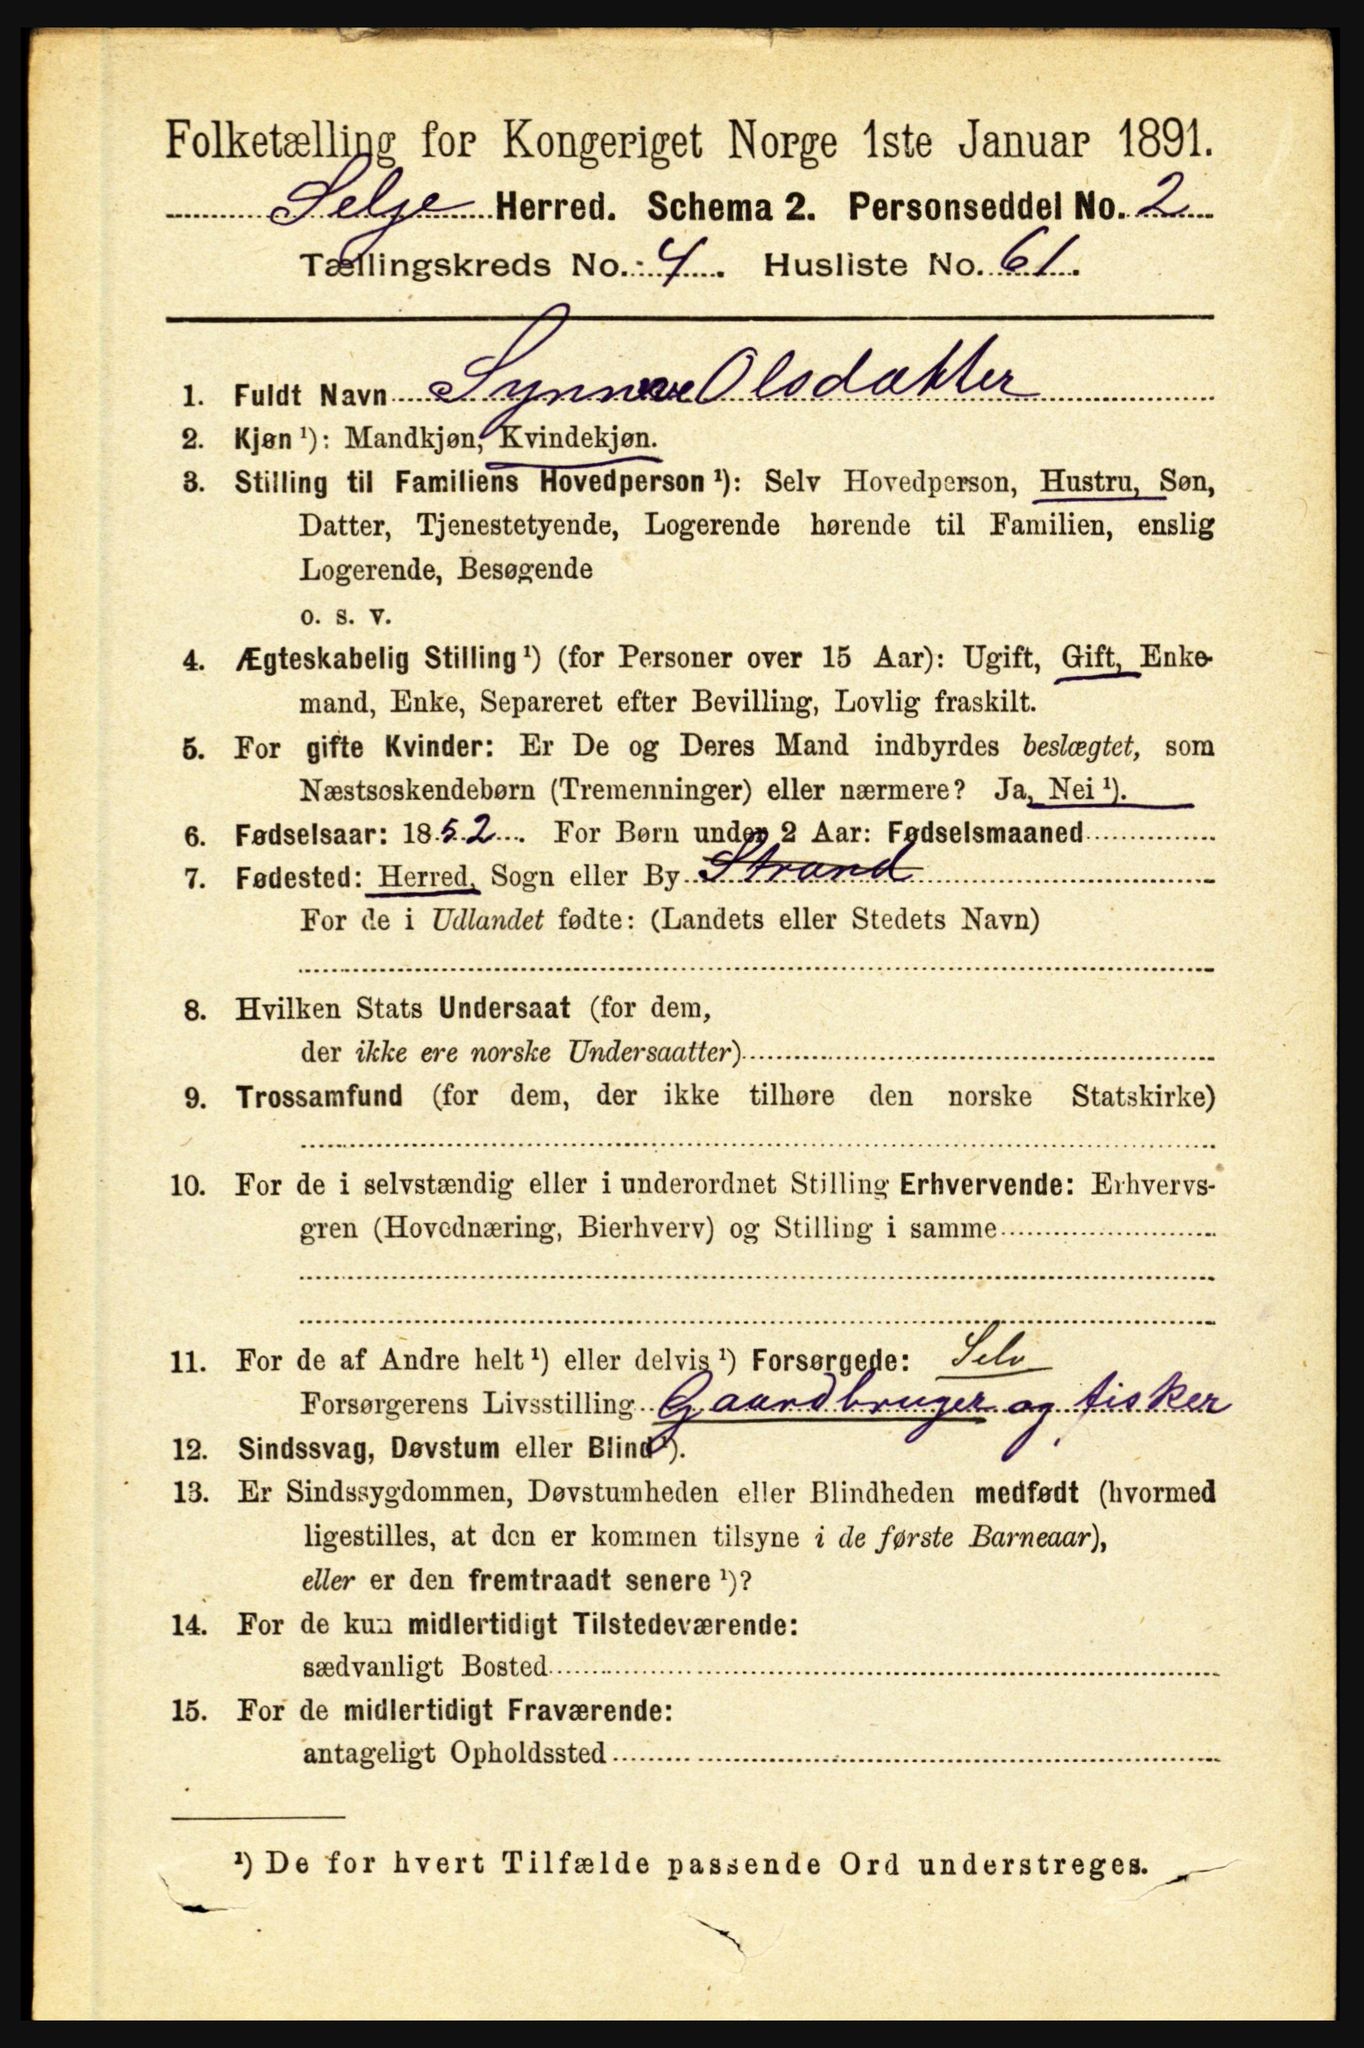 Folketælling for Kongeriget Norge 1ste Januar 1891.
Selje Herred. Schema 2. Personseddel No. 2
Tællingskreds No. 4. Husliste No. 61.
1. Fuldt Navn Synneve Olsdatter
2. Kjøn ¹): Mandkjøn, Kvindekjøn.
3. Stilling til Familiens Hovedperson ¹): Selv Hovedperson, Hustru, Søn,
Datter, Tjenestetyende, Logerende hørende til Familien, enslig
Logerende, Besøgende
o. s. v.
4. Ægteskabelig Stilling ¹) (for Personer over 15 Aar): Ugift, Gift, Enke-
mand, Enke, Separeret efter Bevilling, Lovlig fraskilt.
5. For gifte Kvinder: Er De og Deres Mand indbyrdes beslægtet, som
Næstsøskendebørn (Tremenninger) eller nærmere? Ja, Nei ¹).
6. Fødselsaar: 1852. For Børn under 2 Aar: Fødselsmaaned
7. Fødested: Herred, Sogn eller By Strand
For de i Udlandet fødte: (Landets eller Stedets Navn)
8. Hvilken Stats Undersaat (for dem,
der ikke ere norske Undersaatter)
9. Trossamfund (for dem, der ikke tilhøre den norske Statskirke)
10. For de i selvstændig eller i underordnet Stilling Erhvervende: Erhvervs-
gren (Hovednæring, Bierhverv) og Stilling i samme
11. For de af Andre helt ¹) eller delvis ¹) Forsørgede: Selv
Forsørgerens Livsstilling Gaardbruger og fisker
12. Sindssvag, Døvstum eller Blind ¹).
13. Er Sindssygdommen, Døvstumheden eller Blindheden medfødt (hvormed
ligestilles, at den er kommen tilsyne i de første Barneaar),
eller er den fremtraadt senere ¹)?
14. For de kun midlertidigt Tilstedeværende:
sædvanligt Bosted
15. For de midlertidigt Fraværende:
antageligt Opholdssted
¹) De for hvert Tilfælde passende Ord understreges.